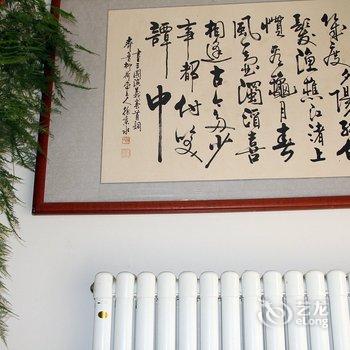 幾度夕陽紅白
髮漁樵江渚上
慣看龝月春
風一壺濁酒喜
相逢古今多少
事都付笑
譚中
三國演義卷首詞
艺龙
eLong